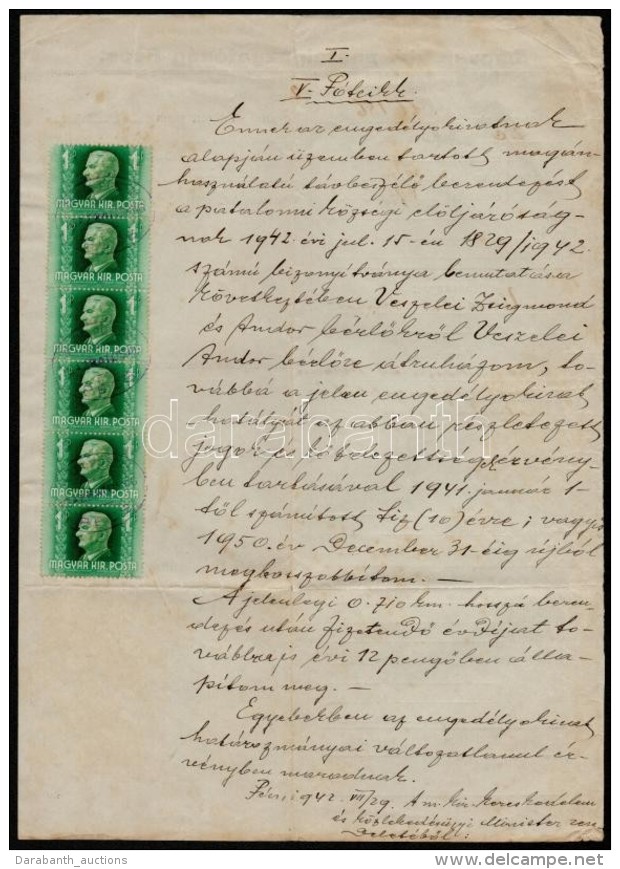 I.
V. Pótcikk.
Ennek az engedélyokiratnak
alapján üzemben tartott magán-
használatú távbeszélő berendezést
a patalomi községi elöljáróság-
nak 1942. évi jul. 15-én 1829/1942.
számú bizonyítványa bemutatása
következtében Veszelei Zsigmond
és Andor bérlőkről Veszelei
Andor bérlőre átruházom, to-
vábbá a jelen engedélyokirat
hatályát az abban részletezett
jogok és kötelezettség érvény-
ben tartásával 1941. január 1-
től számított tíz (10) évre; vagyis
1950. év December 31-éig újból
meghosszabbítom. —
A jelenlegi 0.710 km. hosszú beren-
dezés után fizetendő évdíjat to-
vábbra is évi 12 pengőben álla-
pítom meg. —
Egyebekben az engedélyokirat
határozmányai változatlanul ér-
vényben maradnak.
1942. VII/29. A m. kir. kereskedelem
és közlekedésügyi Miniszter ren
deletéből:
1P
MAGYAR KIR. POSTA
1P
MAGYAR KIR. POSTA
1P
MAGYAR KIR. POSTA
1P
MAGYAR KIR. POSTA
1P
MAGYAR KIR. POSTA
1P
MAGYAR KIR. POSTA
darabanth
Darabanth_auctions
delcampe.net